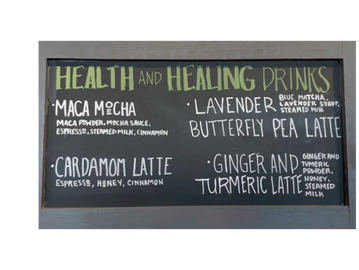 HEALTH AND HEALING DRINKS
· MACA MOCHA
MACA POWDER, MOCHA SAUCE,
ESPRESSO, STEAMED MILK, CINNAMON
· CARDAMOM LATTE
ESPRESSO, HONEY, CINNAMON
· LAVENDER
BUTTERFLY PEA LATTE
BLUE MATCHA,
LAVENDER SYRUP,
STEAMED MILK
· GINGER AND
TURMERIC LATTE
GINGER AND
TUMERIC
POWDER,
HONEY,
STEAMED
MILK